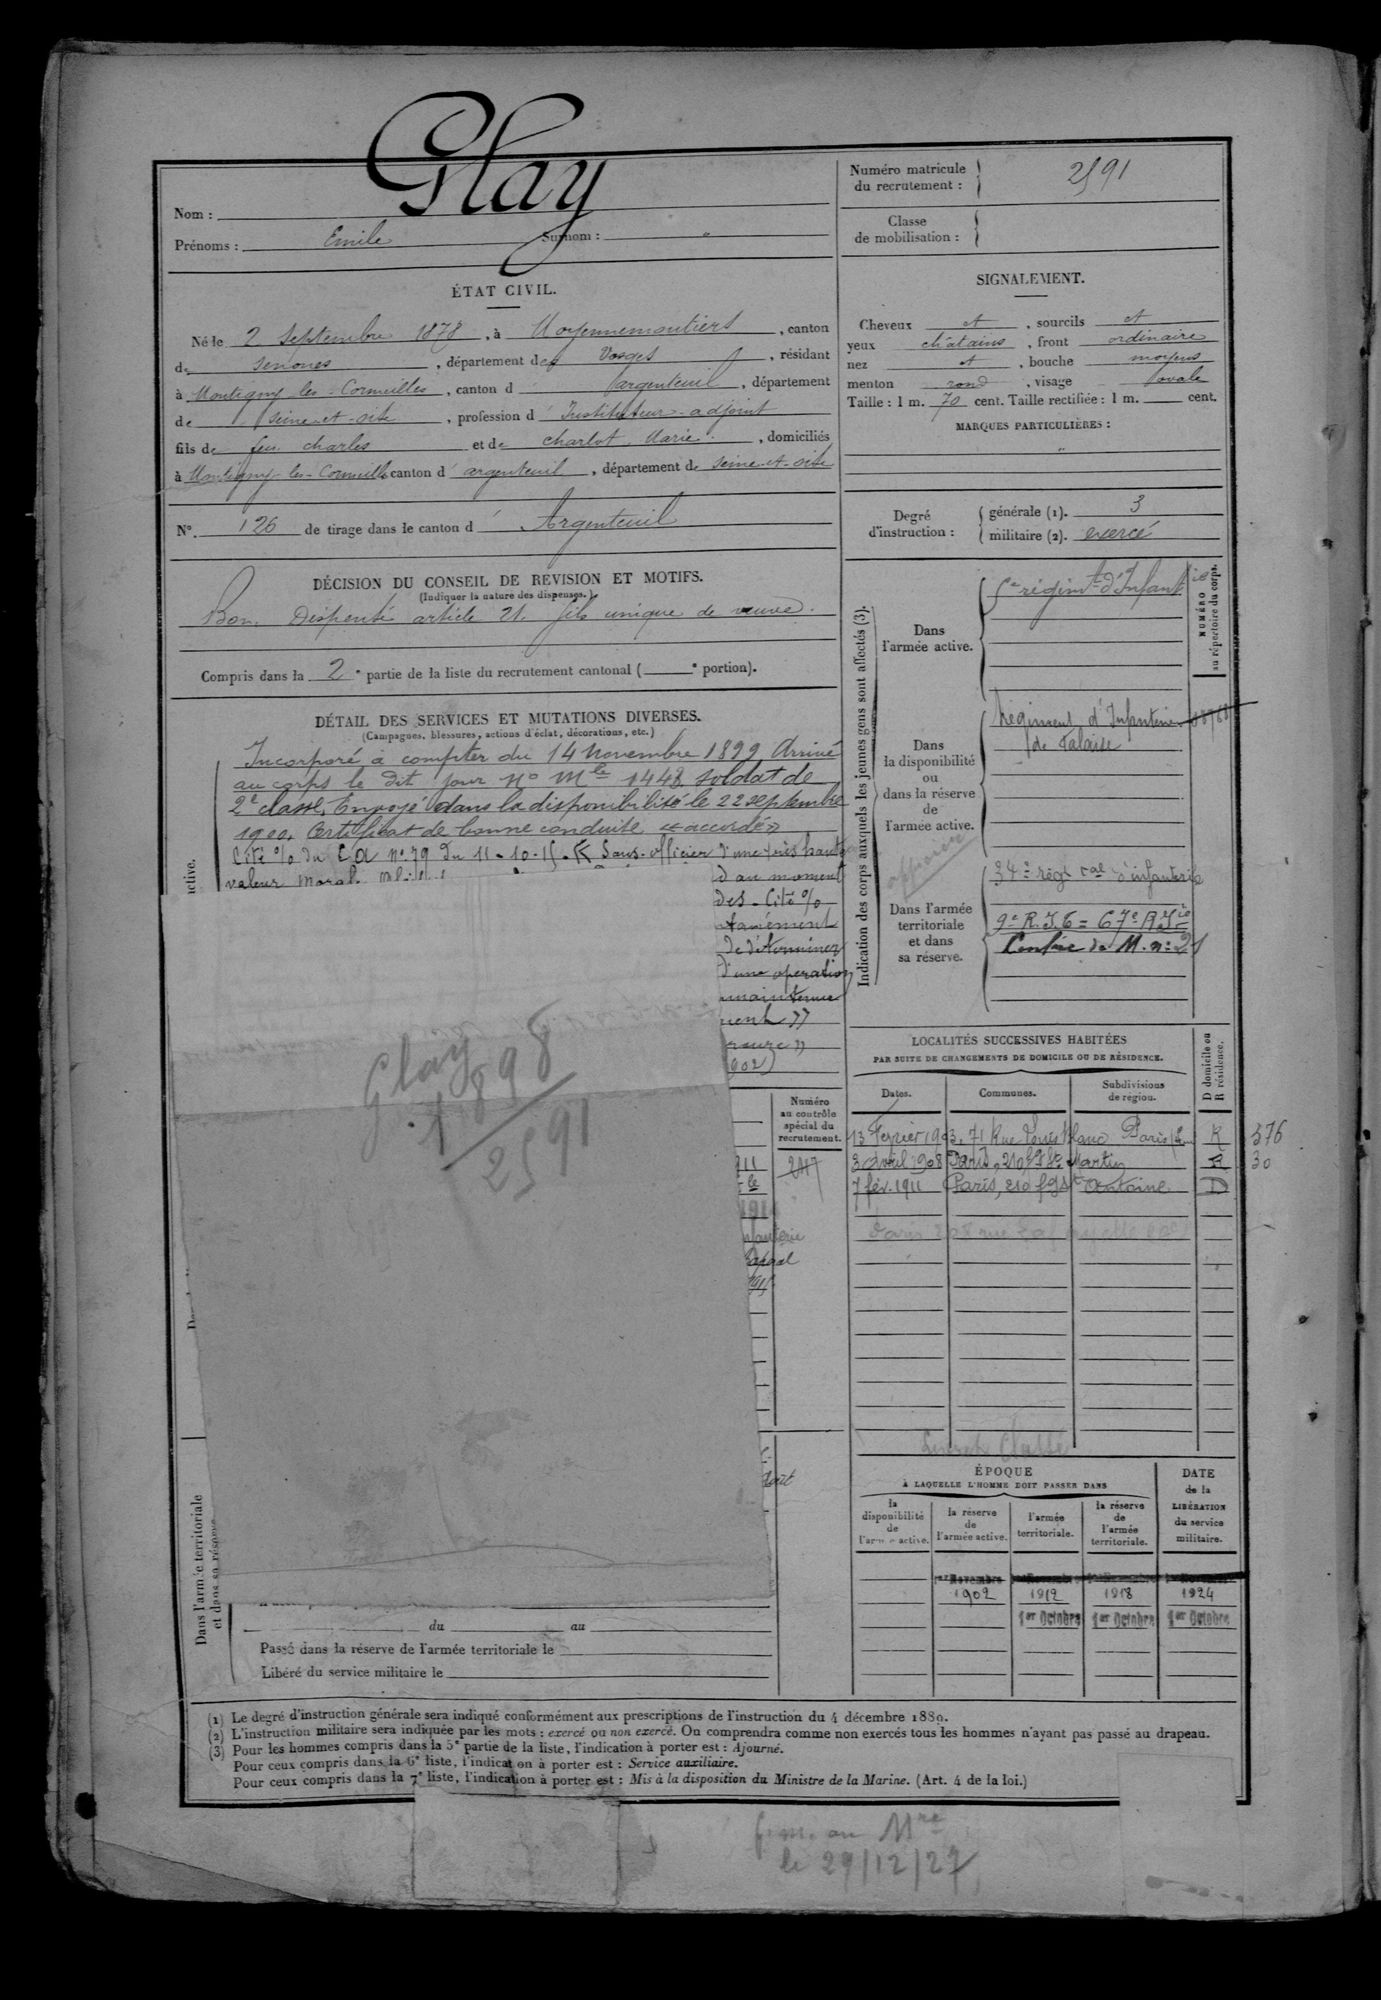 Glay
Nom :
Prénoms : Emile Surnom : "
Numéro matricule du recrutement : 2591
Classe de mobilisation :
ÉTAT CIVIL.
Né le 2 Septembre 1878, à Moyenmoutiers, canton
de Senones, département des Vosges, résidant
à Montigny-les-Cormeilles, canton d'argenteuil, département
de Seine-et-oise, profession d'Instituteur-adjoint
fils de feu charles et de charlot Marie, domiciliés
à Montigny-les-Cormeilles canton d'argenteuil, département de Seine-et-oise
N° 126 de tirage dans le canton d'Argenteuil
SIGNALEMENT.
Cheveux et, sourcils et
yeux châtains, front ordinaire
nez et, bouche moyens
menton rond, visage ovale
Taille : 1 m. 70 cent. Taille rectifiée : 1 m. cent.
MARQUES PARTICULIÈRES :
"
Degré d'instruction : générale (1). 3
militaire (2). exercé
DÉCISION DU CONSEIL DE REVISION ET MOTIFS.
(Indiquer la nature des dispenses.)
Bon. Dispensé article 21. fils unique de veuve.
Compris dans la 2e partie de la liste du recrutement cantonal ( e portion).
DÉTAIL DES SERVICES ET MUTATIONS DIVERSES.
(Campagnes, blessures, actions d'éclat, décorations, etc.)
Incorporé à compter du 14 novembre 1899 Arrivé
au corps le dit jour no Mle 1448 soldat de
2e classe. Envoyé dans la disponibilité le 22 septembre
1900. Certificat de bonne conduite « accordé »
Cité % du CA no 79 du 11-10-15. « Sous-officier d'une très haute
valeur moral
d au moment
des - Cité %
de déterminer
d'une operation
maintenue
902)
ctive.
Indication des corps auxquels les jeunes gens sont affectés (3).
NUMÉRO au répertoire du corps.
Dans l'armée active.
5e régimt d'Infantie
Dans la disponibilité ou dans la réserve de l'armée active.
Régiment d'Infanterie
de Falaise
Dans l'armée territoriale et dans sa réserve.
34e régt ral d'infanterie
9e R.I.T = 67e R.Ie
Centre de M. no 21
LOCALITÉS SUCCESSIVES HABITÉES
PAR SUITE DE CHANGEMENTS DE DOMICILE OU DE RÉSIDENCE.
Dates. Communes. Subdivisions de région. D domicile ou R résidence.
13 Février 1903. 71 Rue Louis Blanc Paris R 376
3 avril 1908 Paris, 210 f g St Martin 30
7 fév. 1911 Paris, 210 f g St Antoine D
Paris 208 rue Lafayette
Numéro au contrôle spécial du recrutement.
Glay
1898
2591
ÉPOQUE
À LAQUELLE L'HOMME DOIT PASSER DANS
DATE de la LIBÉRATION du service militaire.
la disponibilité de l'armée active.
la réserve de l'armée active.
l'armée territoriale.
la réserve de l'armée territoriale.
1er Novembre
1902 1912 1918 1924
1er Octobre 1er Octobre 1er Octobre
Dans l'armée territoriale et dans sa réserve
du au
Passé dans la réserve de l'armée territoriale le
Libéré du service militaire le
(1) Le degré d'instruction générale sera indiqué conformément aux prescriptions de l'instruction du 4 décembre 1889.
(2) L'instruction militaire sera indiquée par les mots : exercé ou non exercé. On comprendra comme non exercés tous les hommes n'ayant pas passé au drapeau.
(3) Pour les hommes compris dans la 5e partie de la liste, l'indication à porter est : Ajourné.
Pour ceux compris dans la 6e liste, l'indication à porter est : Service auxiliaire.
Pour ceux compris dans la 7e liste, l'indication à porter est : Mis à la disposition du Ministre de la Marine. (Art. 4 de la loi.)
au Mre
le 29/12/27